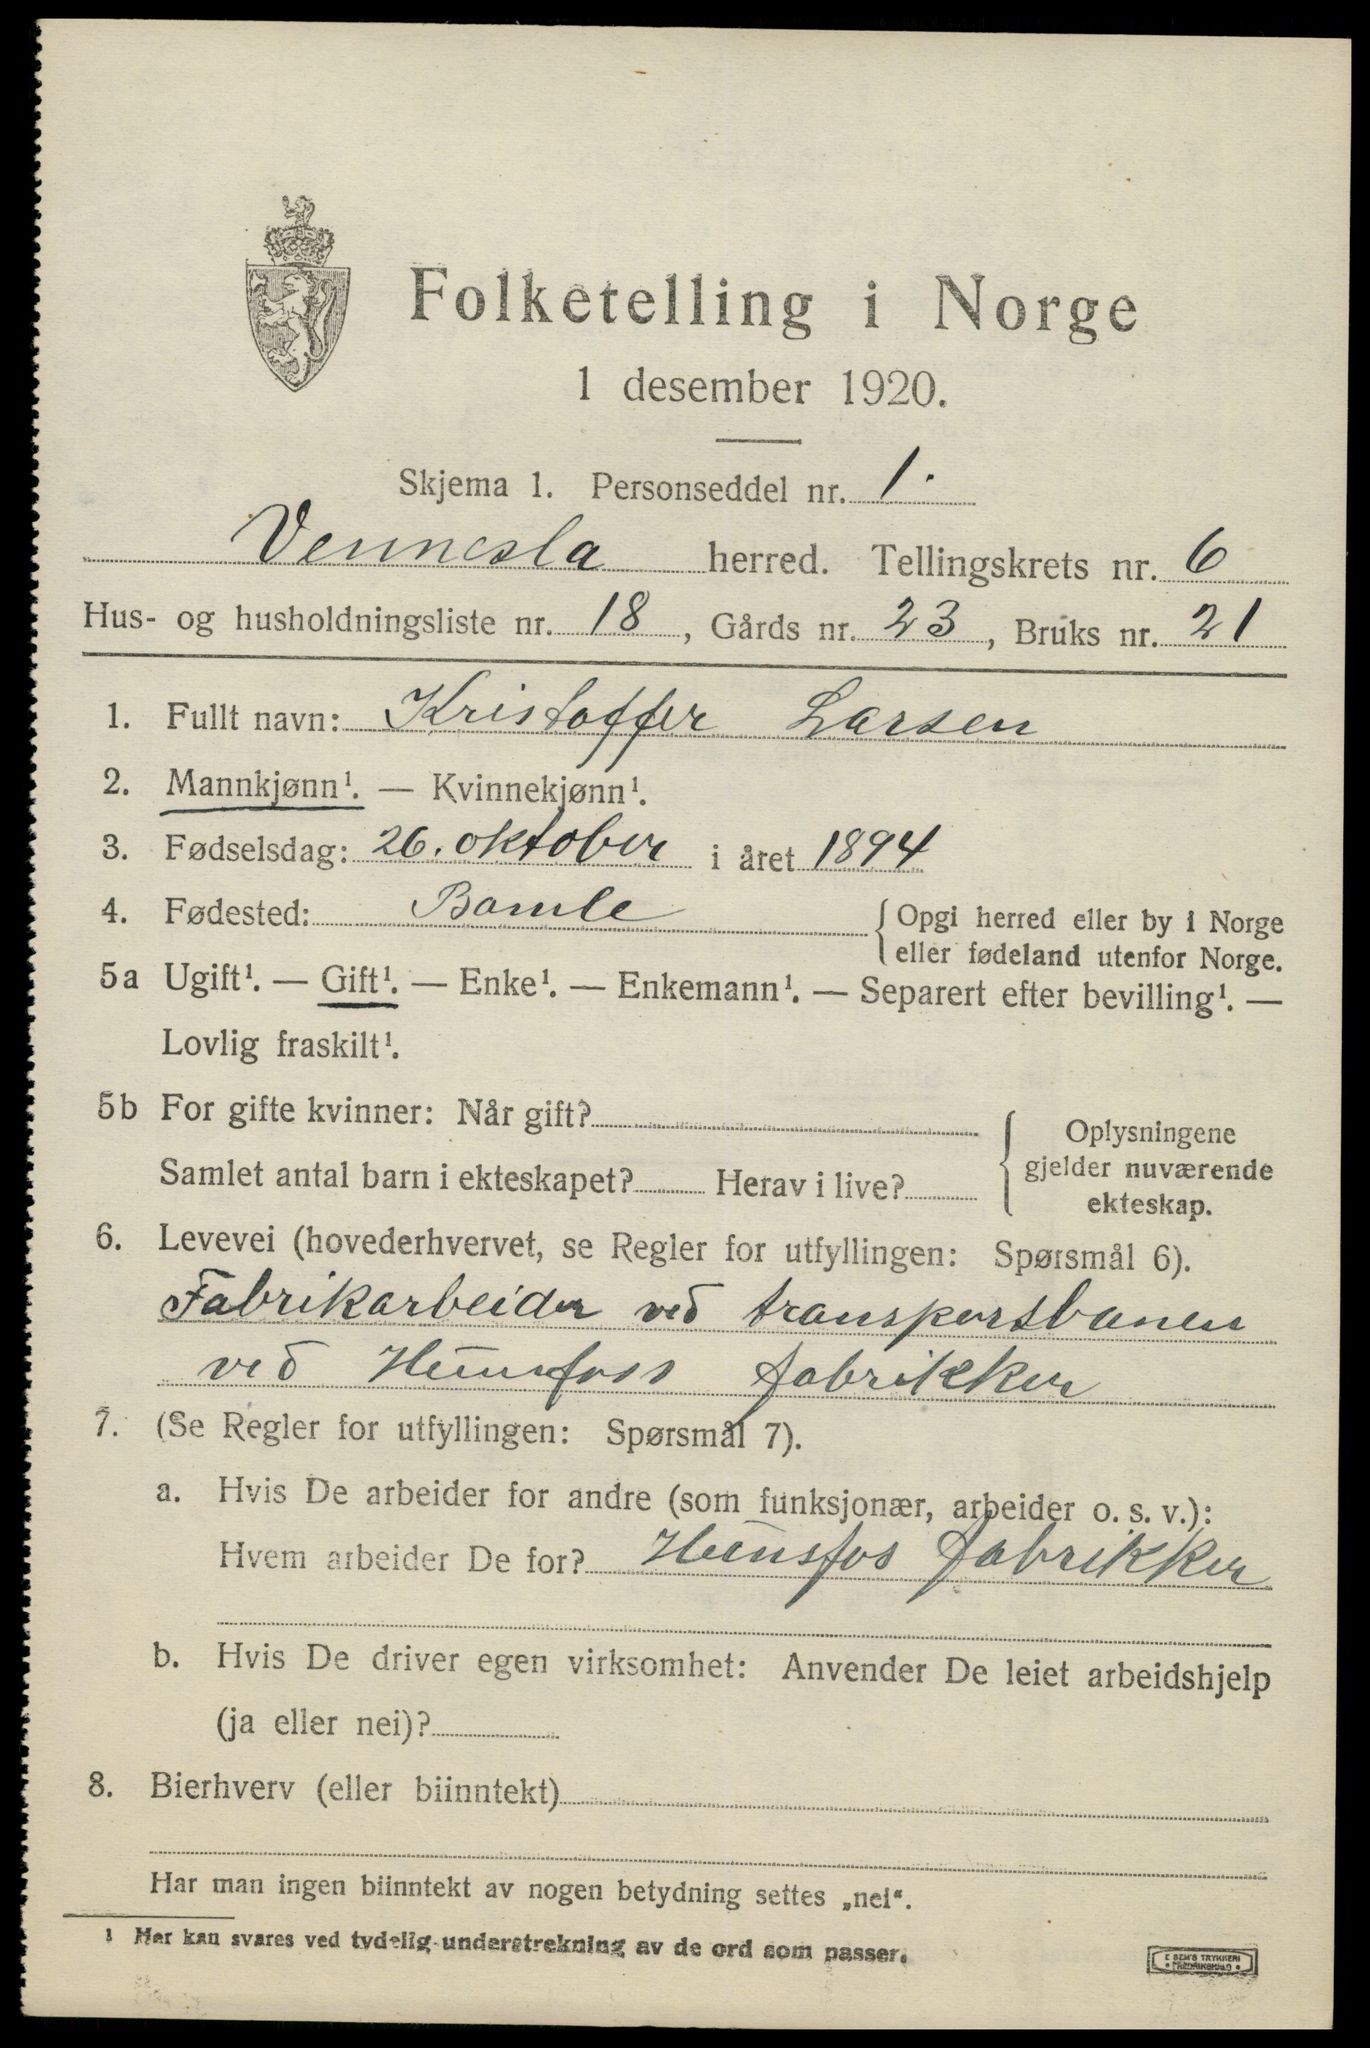 Folketelling i Norge
1 desember 1920.
Skjema 1. Personseddel nr. 1.
Vennesla herred. Tellingskrets nr. 6
Hus- og husholdningsliste nr. 18, Gårds nr. 23, Bruks nr. 21
1. Fullt navn: Kristoffer Larsen
2. Mannkjønn¹. — Kvinnekjønn¹.
3. Fødselsdag: 26. oktober i året 1894
4. Fødested: Bamle { Opgi herred eller by i Norge
eller fødeland utenfor Norge.
5a Ugift¹. — Gift¹. — Enke¹. — Enkemann¹. — Separert efter bevilling¹. —
Lovlig fraskilt¹.
5b For gifte kvinner: Når gift?
Samlet antal barn i ekteskapet? Herav i live?
{ Oplysningene
gjelder nuværende
ekteskap.
6. Levevei (hovederhvervet, se Regler for utfyllingen: Spørsmål 6).
Fabrikarbeider ved transportbanen
ved Hunsfoss fabrikker
7. (Se Regler for utfyllingen: Spørsmål 7).
a. Hvis De arbeider for andre (som funksjonær, arbeider o. s. v.):
Hvem arbeider De for? Hunsfos fabrikker
b. Hvis De driver egen virksomhet: Anvender De leiet arbeidshjelp
(ja eller nei)?
8. Bierhverv (eller biinntekt)
Har man ingen biinntekt av nogen betydning settes „nei“.
1 Her kan svares ved tydelig understrekning av de ord som passer.
E SEM'S TRYKKERI
• FREDRIKSHALD •